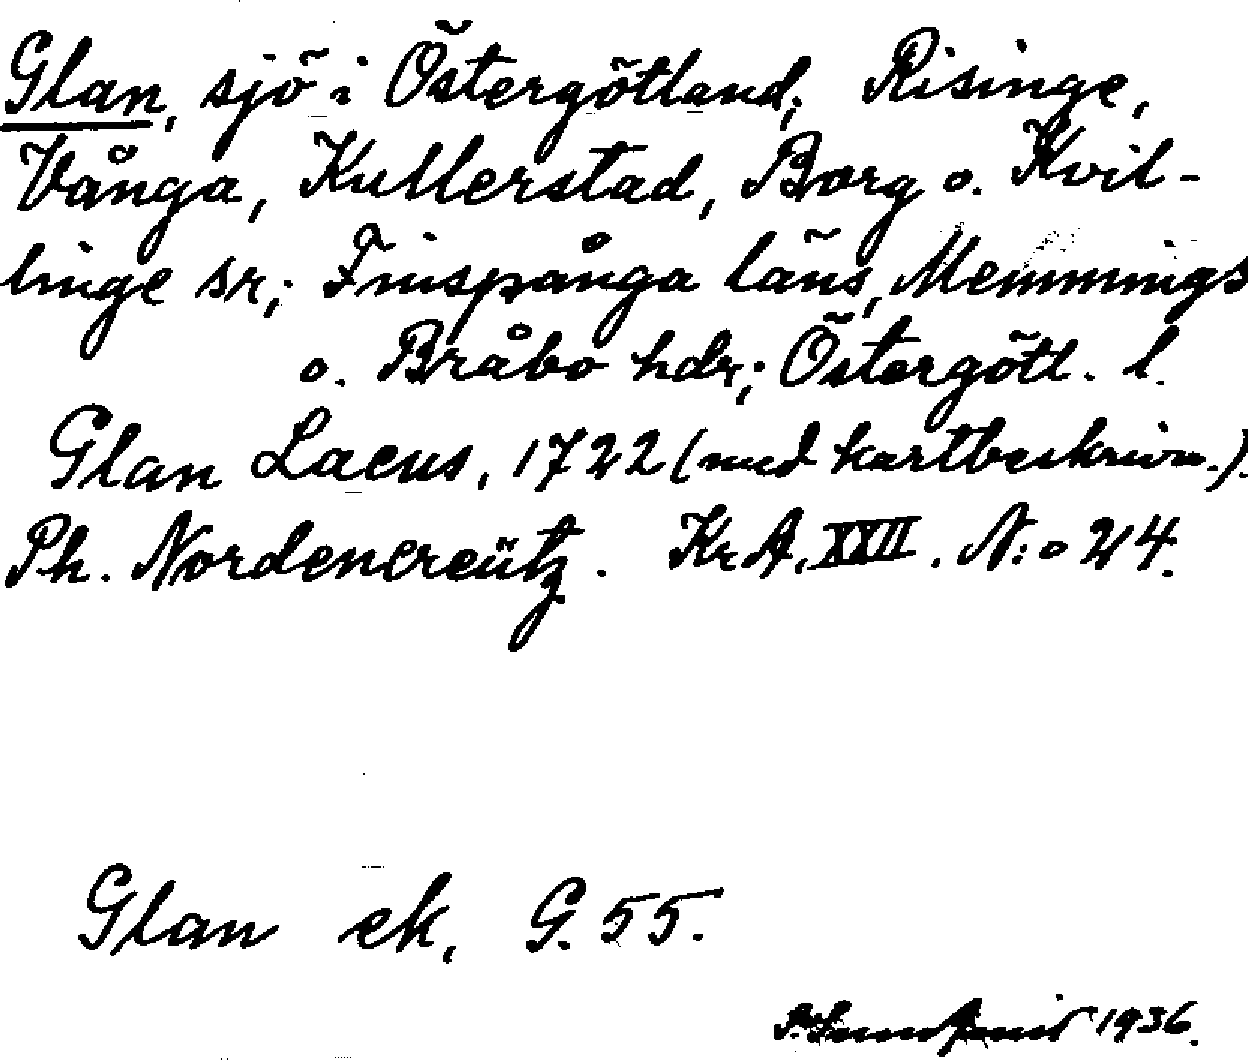 Glan, sjö i Östergötland; Risinge,
Vånga, Kullerstad, Borg o. Kvil-
linge sr; Finspånga läns, Memmings
o. Bråbo hdr; Östergötl. l.
Glan Lacus, 1722 (med kartbeskrivn.).
Ph. Nordencreütz. KrA, XXII. N:o 24.
Glan ek, G. 55.
1936.